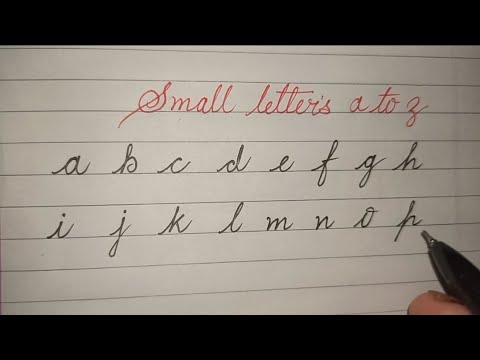 Small letter's a to z
a b c d e f g h
i j k l m n o p